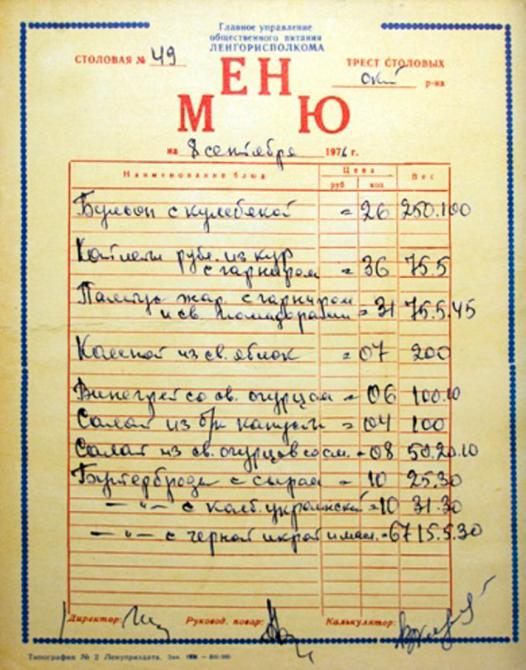 Главное управление
общественного питания
ЛЕНГОРИСПОЛКОМА
СТОЛОВАЯ № 49
ТРЕСТ СТОЛОВЫХ
ский р-на
МЕНЮ
на 8 сентября 1976 г.
Наименование блюд Цена Вес
руб. коп.
Бульон с кулебякой = 26 250.100
Котлеты рубл. из кур
с гарниром = 36 75.5
Палтус жар. с гарниром
и св. помидорами = 31 75.5.45
Компот из св. яблок = 07 200
Винегрет со св. огурцом = 06 100.10
Салат из б/к капусты = 04 100
Салат из св. огурцов со см. = 08 50.20.10
Бутерброды с сыром = 10 25.30
—"— с колб. украинской = 10 31.30
—"— с черной икрой и масл. = 67 15.5.30
Директор: Руковод. повар: Калькулятор:
Типография № 2 Ленуприздата. Зак.